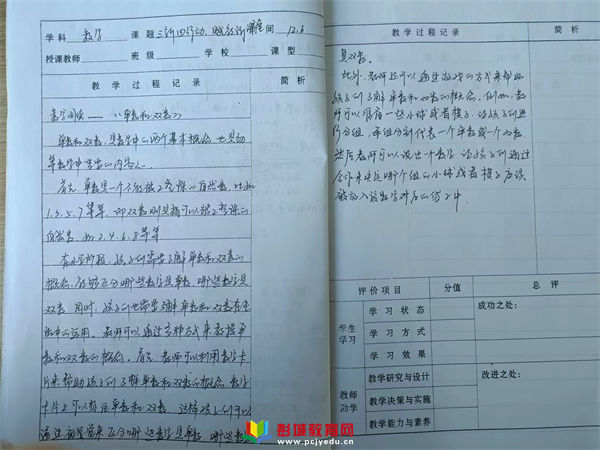 学科 数学 课题 三新四行动、赋能新课堂 时间 12.6
授课教师 班级 学校 课型
教学过程记录 简析
数学阅读——《单数和双数》
单数和双数，是数学中的两个基本概念，也是幼
等数学中重要的内容之一
首先，单数是一个不能被2整除的自然数，比如
1.3.5.7等等，而双数则是指可以被2整除的
自然数，如2.4.6.8等等
在小学阶段，孩子们需要了解单数和双数的
概念，能够区分哪些数字是单数，哪些数字是
双数。同时，孩子们也需要理解单数和双数在生
活中的运用。老师可以通过多种方式来教授单
数和双数的概念。首先，老师可以利用数字卡
片来帮助孩子们了解单数和双数的概念。数字
卡片上可以标注单数和双数，这样孩子们可以
通过观察来区分哪些数字是单数，哪些数
教学过程记录 简析
是双数。
此外，老师还可以通过游戏的方式来帮助
孩子们了解单数和双数的概念。例如，老
师可以准备一些小球或者棋子，让孩子们进
行分组，每组分别代表一个单数或一个双数
然后老师可以说出一个数字，让孩子们通过
合作来决定哪个组的小球或者棋子应该
被放入该数字对应的袋子中。
评价项目 分值 总评
学生学习 学习状态 成功之处：
学习方式
学习效果
教师助学 教学研究与设计 改进之处：
教学决策与实施
教学能力与素养
彭城教育网
www.pcjyedu.cn